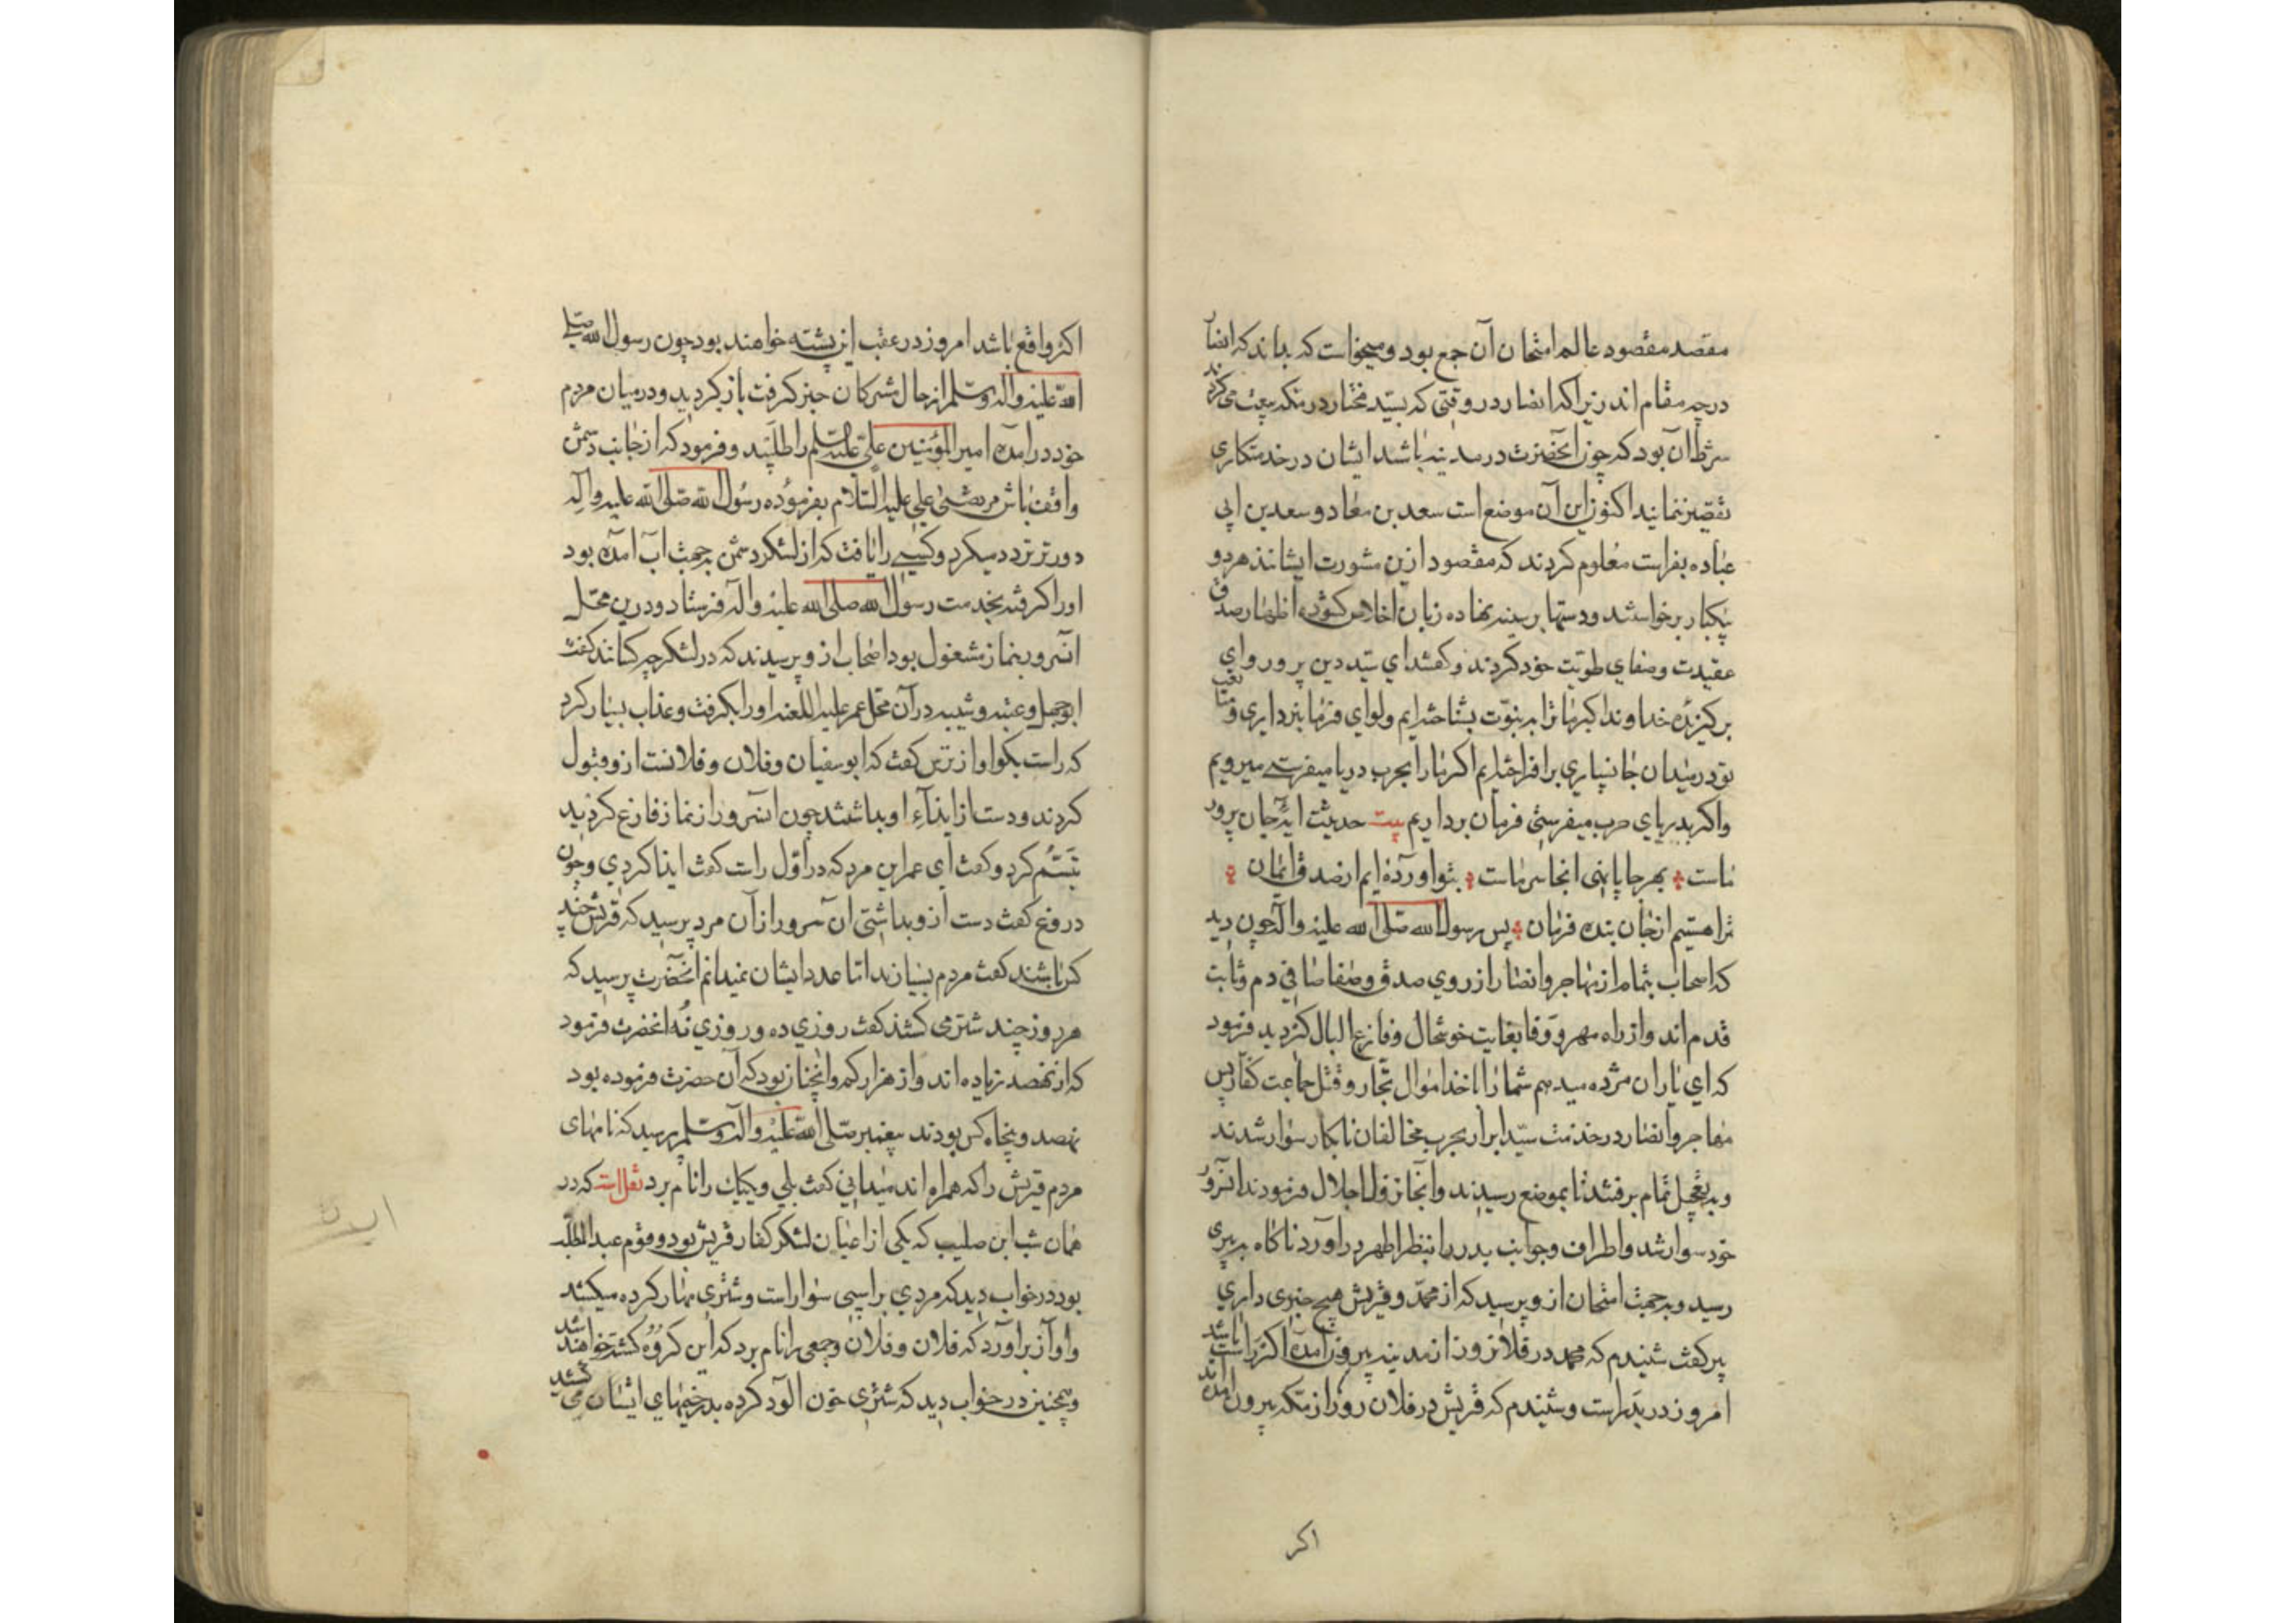 مقصد مقصود عالم امتحان آن جمع بود و میخواست که بداند که انصار
درچه مقام اند زیرا که انصار در وقتی که بسید مختار در مکه بیعت می کردند
شرط آن بود که چون آنحضرت در مدینه باشد ایشان در خدمتکاری
تقصیر ننمایند اکنون این آن موضع است سعد بن معاد و سعد بن ابی
عباده بفراست معلوم کردند که مقصود ازین مشورت ایشانند هر دو
بیکبار برخواستند و دستها بر سینه نهاده زبان اخلاص کشوده اظهار صدق
عقیدت و صفای طویت خود کردند و کفتند ای سید دین پرور و ای
برکزیده خداوند اکبر ما ترا به نبوت بشناخته ایم و لوای فرمانبرداری و متابعت
تو در میدان جانسپاری برافراخته ایم اکر ما را بحرب دریا میفرستی میرویم
واکر بدریای حرب میفرستی فرمان برداریم بیت حدیث جان پرور
ماست بهر جا پانهی انجا سر ماست بتو اورده ایم از صدق ایمان
ترا هستیم از جان بنده فرمان پس رسول الله صلی الله علیه واله چون دید
که اصحاب بتمام از مهاجر وانصار از روی صدق و صفا صافی دم و ثابت
قدم اند و از راه مهر و وفا بغایت خوشحال و فارغ البال کردید فرمود
که ای یاران مژده میدهم شما را باخذ اموال تجار و قتل جماعت کفار پس
مهاجر وانصار در خدمت سید ابرار بحرب مخالفان نابکار سوار شدند
و به تعجیل تمام برفتند تا بموضع رسیدند و آنجا نزول اجلال فرمودند آنسرور
خود سوار شد و اطراف و جوانب بدر را بنظر اطهر در آورد ناکاه به پیری
رسید و به جهت امتحان ازو پرسید که از محمد و قریش هیچ خبری داری
پیر کفت شنیدم که محمد در فلان روز از مدینه بیرون آمده اکر راست باشد
امروز در بدر است و شنیدم که قریش در فلان روز از مکه بیرون آمده اند
اکر
اکر واقع باشد امروز در عقب این پشته خواهند بود چون رسول الله صلی
الله علیه واله وسلم از حال مشرکان خبر کرفت باز کردید و در میان مردم
خود در آمده امیر المؤمنین علی علیه السلم را طلبید و فرمود که از جانب دشمن
واقف باش مرتضی علی علیه السلام بفرموده رسول الله صلی الله علیه واله
دورتر تردد میکرد و کسی را یافت که از لشکر دشمن بجهت آب آمده بود
اورا کرفته بخدمت رسول الله صلی الله علیه واله فرستاد و درین محل
انسرور بنماز مشغول بود اصحاب ازو پرسیدند که در لشکر چه کسانند کفت
ابوجهل و عتبه و شیبه در آن محل عمر علیه اللعنه اورا بکرفت و عذاب بسیار کرد
که راست بکو او از ترس کفت که ابوسفیان و فلان و فلانست ازو قبول
کردند و دست از ایذاء او بداشتند چون انسرور از نماز فارغ کردید
تبسم کرد و کفت ای عمر این مرد که در اول راست کفت ایذا کردی و چون
دروغ کفت دست ازو بداشتی آن سرور از آن مرد پرسید که قریش چند
کس باشند کفت مردم بسیارند اما عدد ایشان نمیدانم آنحضرت پرسید که
هر روز چند شتر می کشند کفت روزی ده و روزی نه انحضرت فرمود
که از نهصد زیاده اند و از هزار کم وانچنان بود که آن حضرت فرموده بود
نهصد و پنجاه کس بودند پیغمبر صلی الله علیه واله وسلم پرسید که نامهای
مردم قریش را که همراه اند میدانی کفت بلی و یکیک را نام برد نقل است که در
همان شب ابن صلیب که یکی از اعیان لشکر کفار قریش بود و قوم عبد المطلب
بود در خواب دید که مردی بر اسپی سوار است و شتری مهار کرده میکشد
و اواز برآورد که فلان و فلان و جمعی را نام برد که این کروه کشته خواهند شد
و همچنین در خواب دید که شتری خون الود کرده بدر خیمهای ایشان می کشید